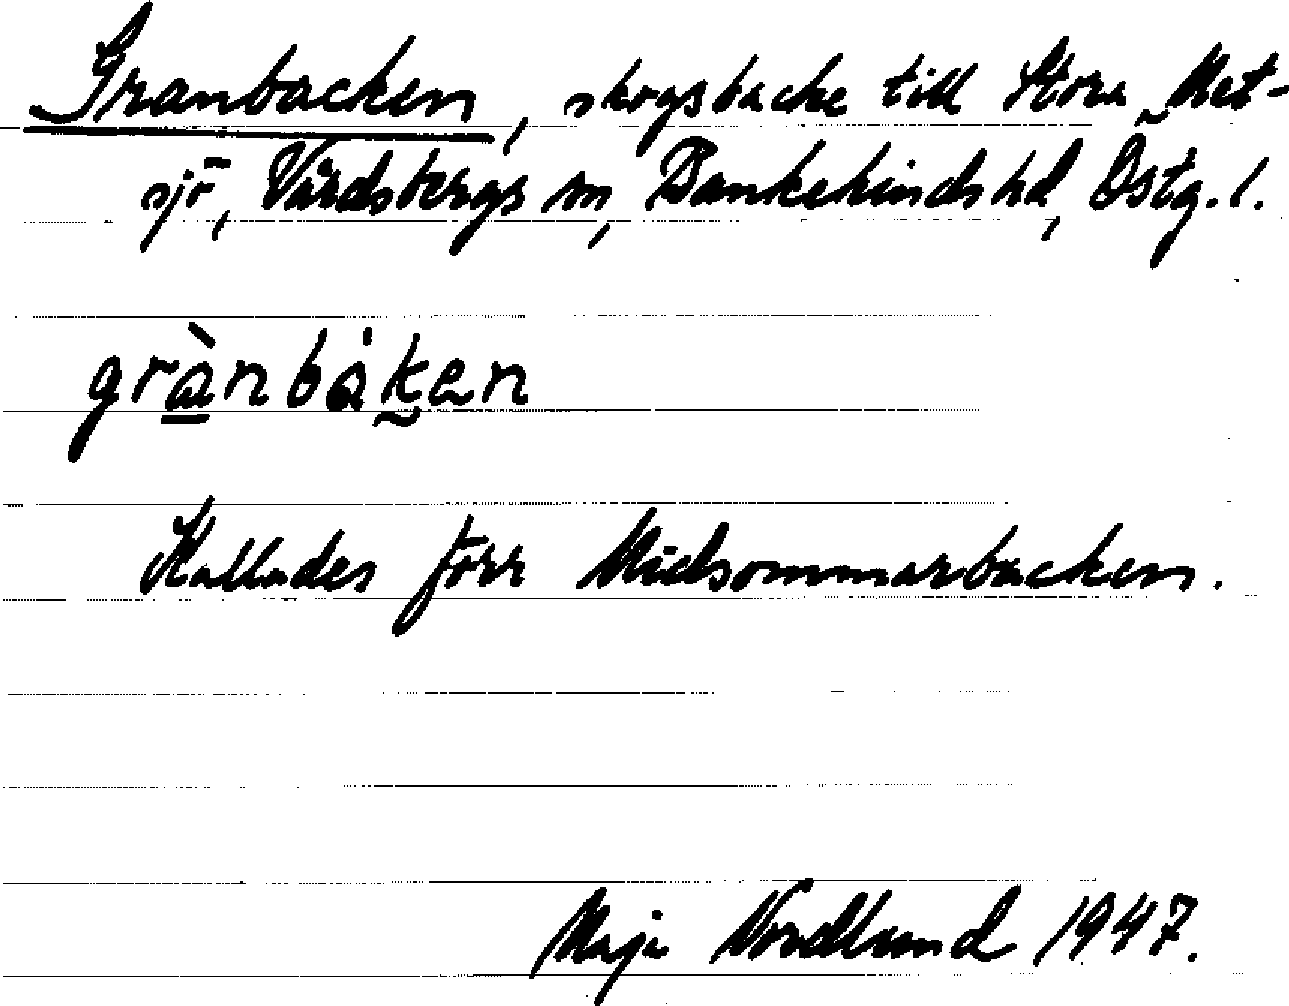 Granbacken, skogsbacke till Stora Met-
sjö, Vårdsbergs sn, Bankekinds hd, Östg. l.
grànbȧken
Kallades förr Midsommarbacken.
Maja Nordlund 1947.